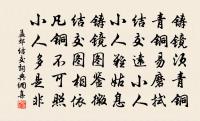 铸镜须青铜
青铜易磨拭
结交远小人
小人难姑息
铸镜图鉴微
结交图相依
凡铜不可照
小人多是非
孟郊结交词典网